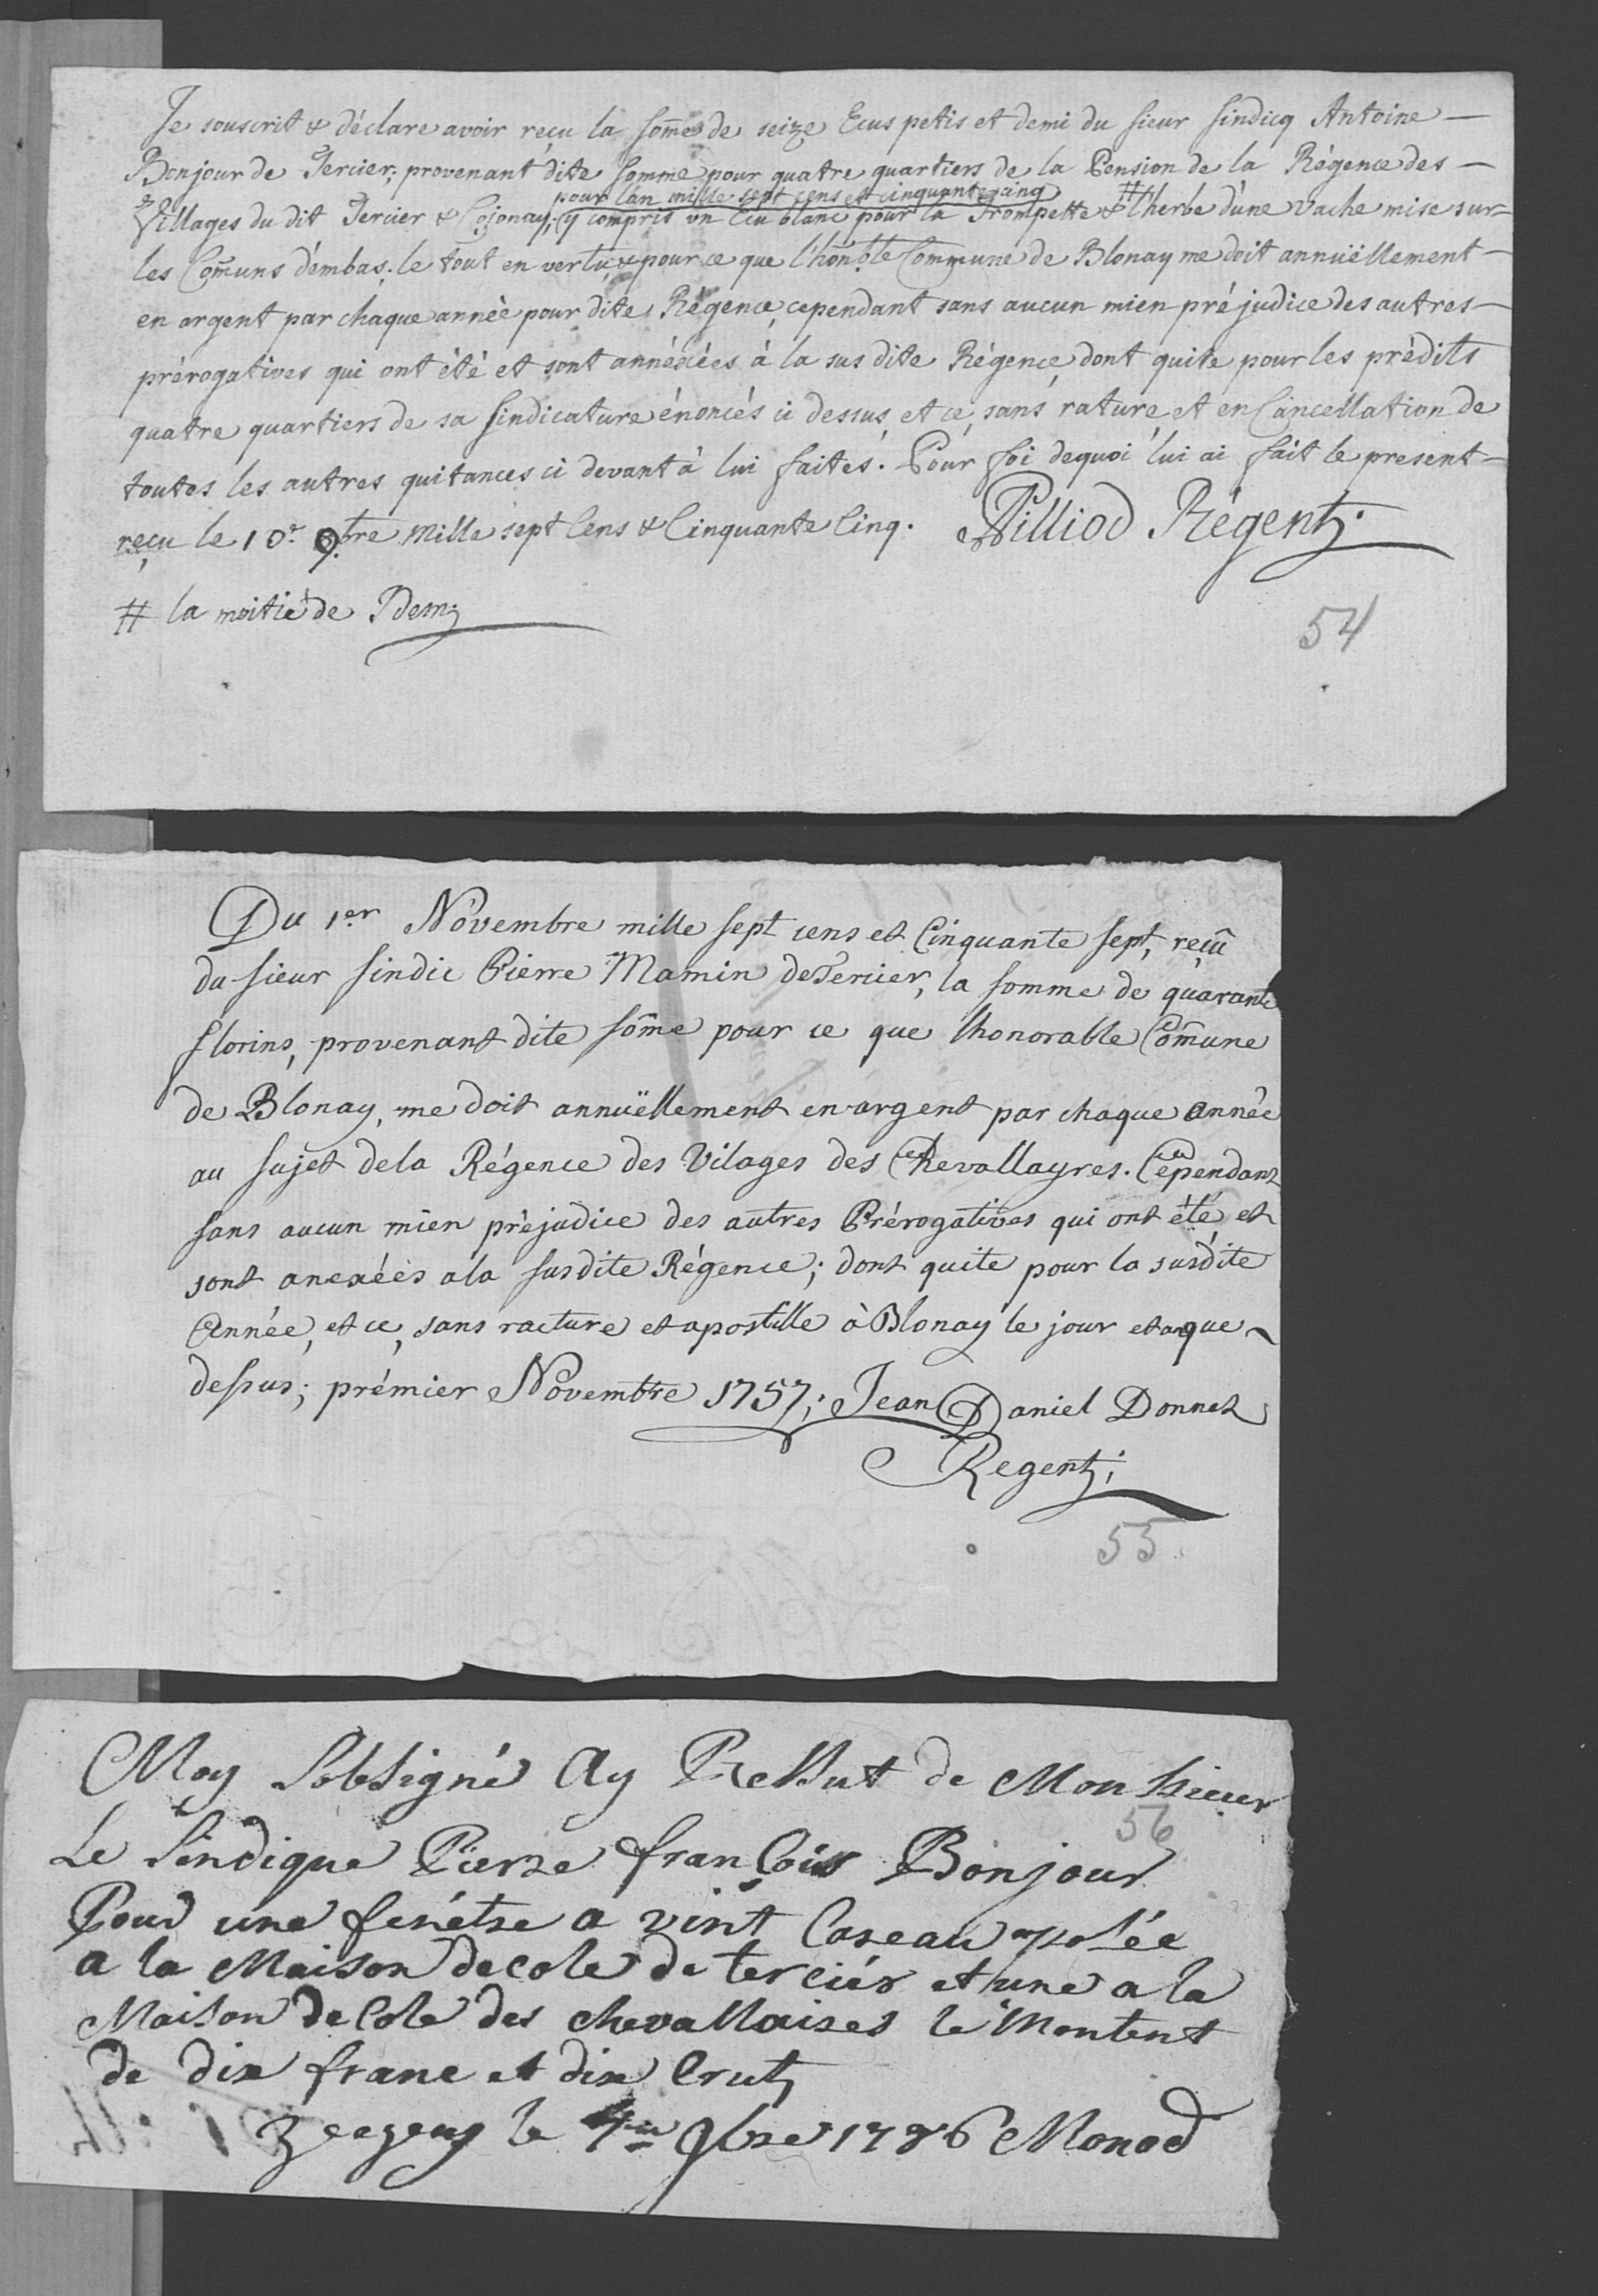 Je souscrit & déclare avoir reçu la some de seize Ecus petis et demi du sieur sindicq Antoine
Bonjour de Tercier; provenant dite somme pour quatre quartiers de la Pension de la Régence des
pour l'an mille sept cens et cinquante cinq
Villages du dit Tercier & Cojonay; y compris un Ecu blanc pour la Trompette & # l'herbe d'une vache mise sur
les Comuns d'embas; le tout en vertu & pour ce que l'honble Commune de Blonay me doit annuëllement
en argent par chaque année pour dite Régence, cependant sans aucun mien préjudice des autres
prérogatives qui ont été et sont annéxées à la sus dite Régence, dont quite pour les prédits
quatre quartiers de sa sindicature énoncés ci dessus, et ce, sans rature, et en Cancellation de
toutes les autres quitances ci devant à lui faites. Pour foi dequoi lui ai fait le present
reçu le 10e. 9.bre mille sept Cens & Cinquante Cinq. Pilliod Régent.
# la moitié de Idem;
54
Du 1er Novembre mille sept cens et Cinquante sept, reçû
du sieur sindic Pierre Mamin de Tercier, la somme de quarante
florins, provenant dite sôme pour ce que lhonorable Comune
de Blonay, me doit annuëllement en argent par chaque année
au sujet dela Régence des Vilages des Chevallayres. Cependant
sans aucun mien préjudice des autres Prérogatives qui ont été et
sont anexées a la susdite Régence; dont quite pour la susdite
Année, et ce, sans racture et apostille à Blonay le jour et an que
dessus; prémier Novembre 1757; Jean Daniel Donnet
Regent;
55
Moy Sobsigné Ay Ressut de Monsieur
56
Le Sindique Pierre françois Bonjour
Pour une fenétre a vint Careau posée
a la Maison decole de terciér et une a la
Maison de Cole des chevallaires le Montent
de dix franc et dix Crutz
le 9bre 1786 Monod